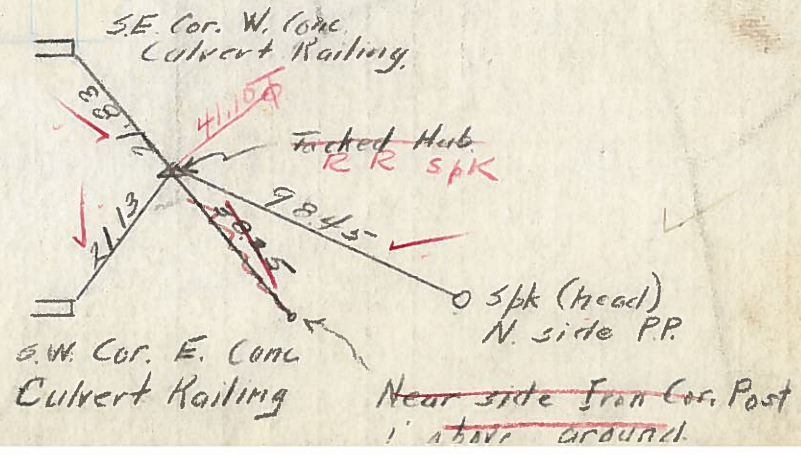 S.E. Cor. W. Conc.
Culvert Railing.
21.83
41.15
Tacked Hub
R R SpK
21.13
98.45
Spk (head)
N. side P.P.
S.W. Cor. E. Conc
Culvert Railing
Near side Iron Cor. Post
1' above ground.